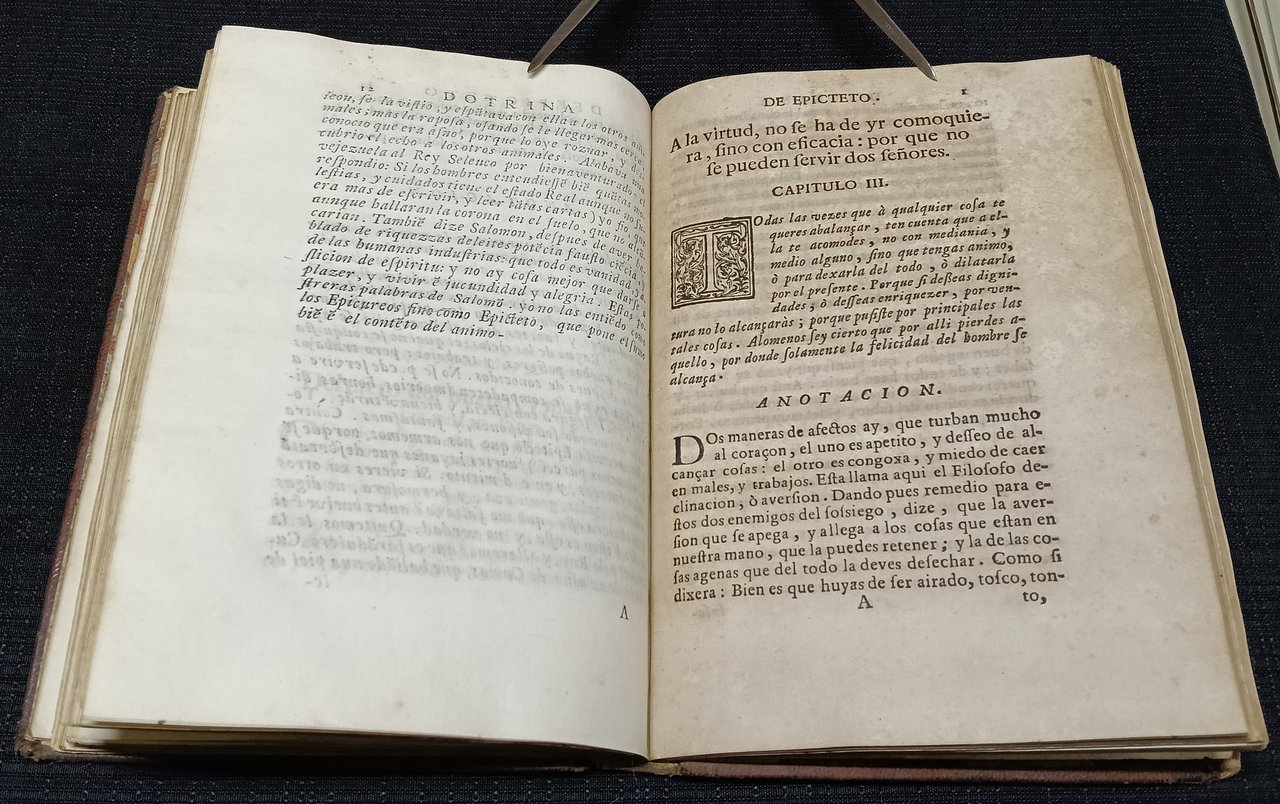 12 DOTRINA
leon, se la vistio, y espãtava con ella a los otros ani-
males; mas la raposa, osando se le llegar mas cerca,
conocio que era asno, porque lo oye roznar, y
cubrio el echo a los otros animales. Alabava una
vejezuela al Rey Seleuco por bienaventurado,
respondio: Si los hombres entendiessẽ biẽ quãtas mo-
lestias, y cuidados tiene el estado Real aunque no
era mas de escrivir, y leer tãtas cartas) yo fio que
aunque hallaran la corona en el suelo, que no alça-
carian. Tambiẽ dize Salomon, despues de aver
blado de riquezzas deleites potẽcia fausto ciẽcia,
de las humanas industrias: que todo es vanidad,
sticion de espiritu: y no ay cosa mejor que darse a
plazer, y vivir ẽ jucundidad y alegria. Estas po-
streras palabras de Salomõ, yo no las entiẽdo como
los Epicureos sino como Epicteto, que pone el sumo
biẽ ẽ el contẽto del animo-
A
DE EPICTETO. 1
A la virtud, no se ha de yr comoquie-
ra, sino con eficacia: por que no
se pueden servir dos señores.
CAPITULO III.
TOdas las vezes que à qualquier cosa te
queres abalançar, ten cuenta que a el-
la te acomodes, no con mediania, y
medio alguno, sino que tengas animo,
ò para dexarla del todo, ò dilatarla
por el presente. Porque si deseas digni-
dades; ò desseas enriquezer, por ven-
tura no lo alcançaràs; porque pusiste por principales las
tales cosas. Alomenos sey cierto que por alli pierdes a-
quello, por donde solamente la felicidad del hombre se
alcança.
ANOTACION.
DOs maneras de afectos ay, que turban mucho
al coraçon, el uno es apetito, y desseo de al-
cançar cosas: el otro es congoxa, y miedo de caer
en males, y trabajos. Esta llama aqui el Filosofo de-
clinacion, ò aversion. Dando pues remedio para e-
stos dos enemigos del sossiego, dize, que la aver-
sion que se apega, y allega a los cosas que estan en
nuestra mano, que la puedes retener; y la de las co-
sas agenas que del todo la deves desechar. Como si
dixera: Bien es que huyas de ser airado, tosco, ton-
A to,